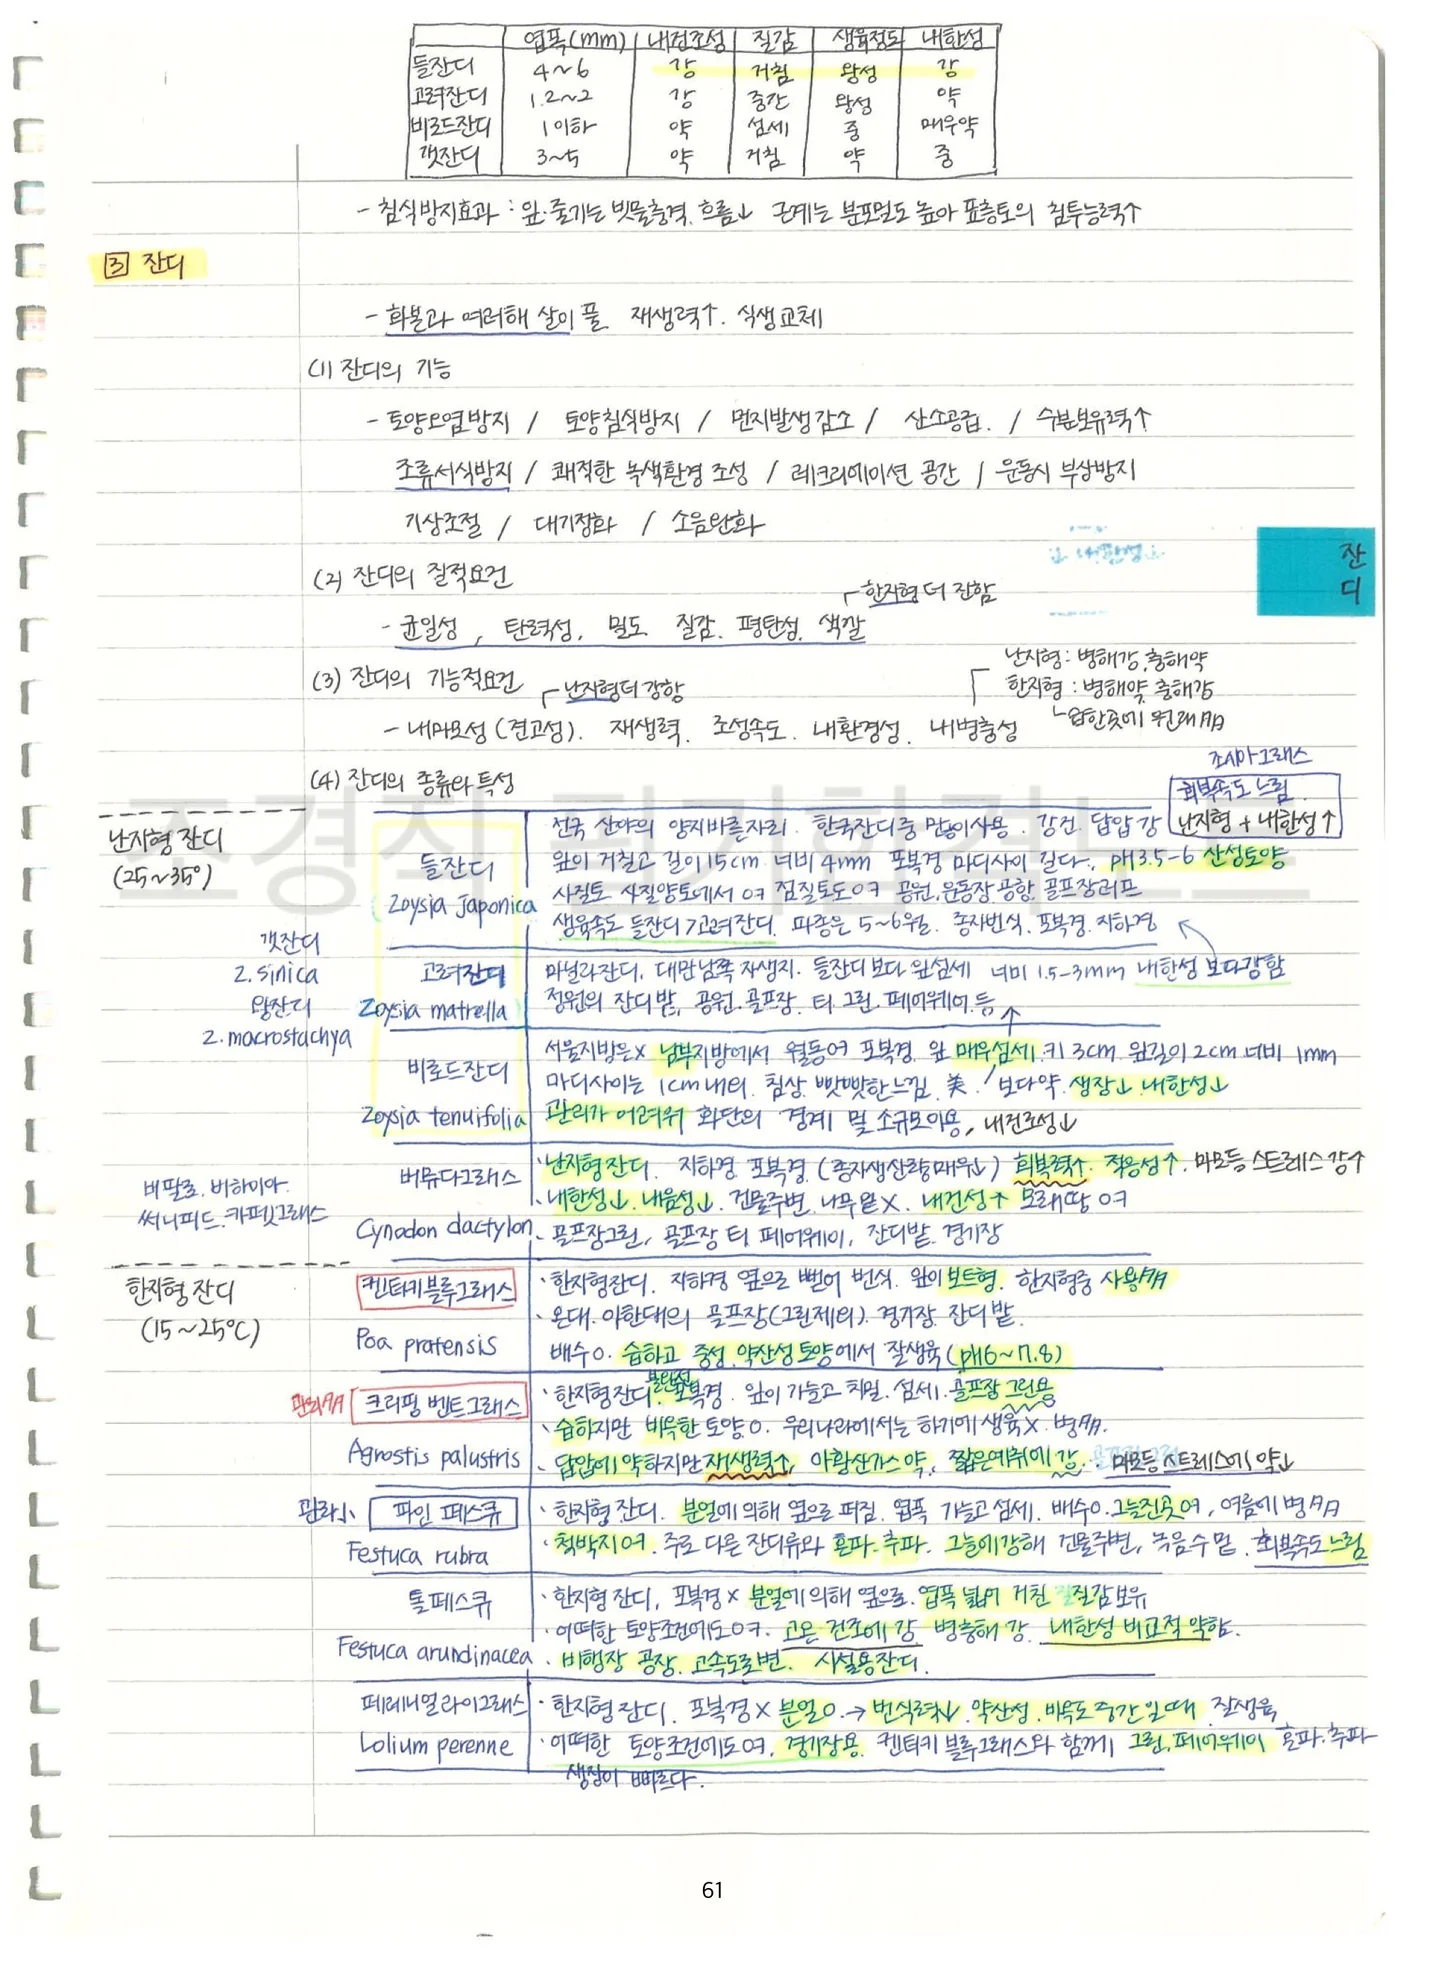 엽폭(mm) 내접조성 질감 생육정도 내한성
들잔디 4~6 강 거침 왕성 강
고려잔디 1.2~2 강 중간 왕성 약
비로드잔디 1이하 약 섬세 중 매우약
갯잔디 3~5 약 거침 약 중
- 침식방지효과 : 잎·줄기는 빗물충격. 흐름↓ 근계는 분포밀도 높아 표층토의 침투능력↑
3 잔디
- 화본과 여러해 살이 풀 재생력↑. 식생교체
(1) 잔디의 기능
- 토양오염방지 / 토양침식방지 / 먼지발생감소 / 산소공급. / 수분보유력↑
조류서식방지 / 쾌적한 녹색환경 조성 / 레크리에이션 공간 / 운동시 부상방지
기상조절 / 대기정화 / 소음완화
잔디
(2) 잔디의 질적요건
한지형 더 진함
- 균일성, 탄력성, 밀도. 질감. 평탄성. 색깔
난지형 : 병해강, 충해약
(3) 잔디의 기능적요건 난지형더 강함
한지형 : 병해약, 충해강
- 내마모성(견고성). 재생력. 조성속도. 내환경성. 내병충성
습한곳에 원래多
조시아그래스
(4) 잔디의 종류와 특성
회복속도 느림
난지형 + 내한성↑
난지형 잔디
(25~35°)
들잔디
Zoysia japonica
전국 산야의 양지바른자리. 한국잔디중 많이사용. 강건. 답압 강
잎이 거칠고 길이 15cm 너비 4mm 포복경 마디사이 길다. pH 3.5-6 산성토양
사질토 사질양토에서 OK 점질토도OK 공원.운동장.공항.골프장러프
생육속도 들잔디>고려잔디. 파종은 5~6월. 종자번식. 포복경.지하경
갯잔디
Z. sinica
왕잔디
Z. macrostachya
고려잔디
Zoysia matrella
마닐라잔디. 대만남쪽 자생지. 들잔디보다 잎섬세 너비 1.5-3mm 내한성 보다강함
정원의 잔디밭, 공원. 골프장. 티 그린. 페어웨이.등
비로드잔디
Zoysia tenuifolia
서울지방은X 남부지방에서 월동OK 포복경. 잎 매우섬세. 키 3cm. 잎길이 2cm 너비 1mm
마디사이는 1cm내외. 침상. 빳빳한느낌. 美. 보다약. 생장↓ 내한성↓
관리가 어려워 화단의 경계 및 소규모이용, 내전조성↓
버팔로. 버하이아.
써니피드.카펫그래스
버뮤다그래스
Cynodon dactylon
난지형잔디. 지하경 포복경 (종자생산량매우↓) 회복력↑. 적응성↑. 마모등 스트레스 강↑
· 내한성↓. 내음성↓. 건물주변. 나무 밑 X. 내건성↑ 모래땅 OK
골프장그린, 골프장 티 페어웨이, 잔디밭. 경기장
한지형 잔디
(15~25℃)
켄터키블루그래스
Poa pratensis
· 한지형잔디. 지하경 옆으로 뻗어 번식. 잎이 보트형. 한지형중 사용多
· 온대. 아한대의 골프장(그린제외). 경기장. 잔디밭.
배수O. 습하고 중성.약산성토양에서 잘생육(pH6~7.8)
관리多 크리핑 벤트그래스
Agnostis palustris
· 한지형잔디. 포복경. 잎이 가늘고 치밀. 섬세. 골프장 그린용
불완전
· 습하지만 비옥한 토양O. 우리나라에서는 하기에 생육X. 병多.
· 답압에 약하지만 재생력↑, 아황산가스약, 짧은예취에 강. 마모등 스트레스에 약↓
관리小 파인 페스큐
Festuca rubra
· 한지형잔디. 분얼에 의해 옆으로 퍼짐. 엽폭 가늘고 섬세. 배수O.그늘진곳OK, 여름에 병多
· 척박지OK. 주로 다른 잔디류와 혼파.추파. 그늘에강해 건물주변, 녹음수 밑. 회복속도느림
톨페스큐
Festuca arundinacea
· 한지형잔디, 포복경X 분얼에 의해 옆으로. 엽폭 넓어 거친 질감보유
· 어떠한 토양조건에도OK. 고온 건조에 강 병충해 강. 내한성 비교적 약함.
· 비행장 공장. 고속도로변. 시설용잔디.
페레니얼라이그래스
Lolium perenne
· 한지형잔디. 포복경X 분얼O. → 번식력↓. 약산성. 비옥도 중간 일때 잘생육
· 어떠한 토양조건에도OK, 경기장용. 켄터키 블루그래스와 함께 그린,페어웨이 혼파.추파
생장이 빠르다.
조경직 필기합격노트
61